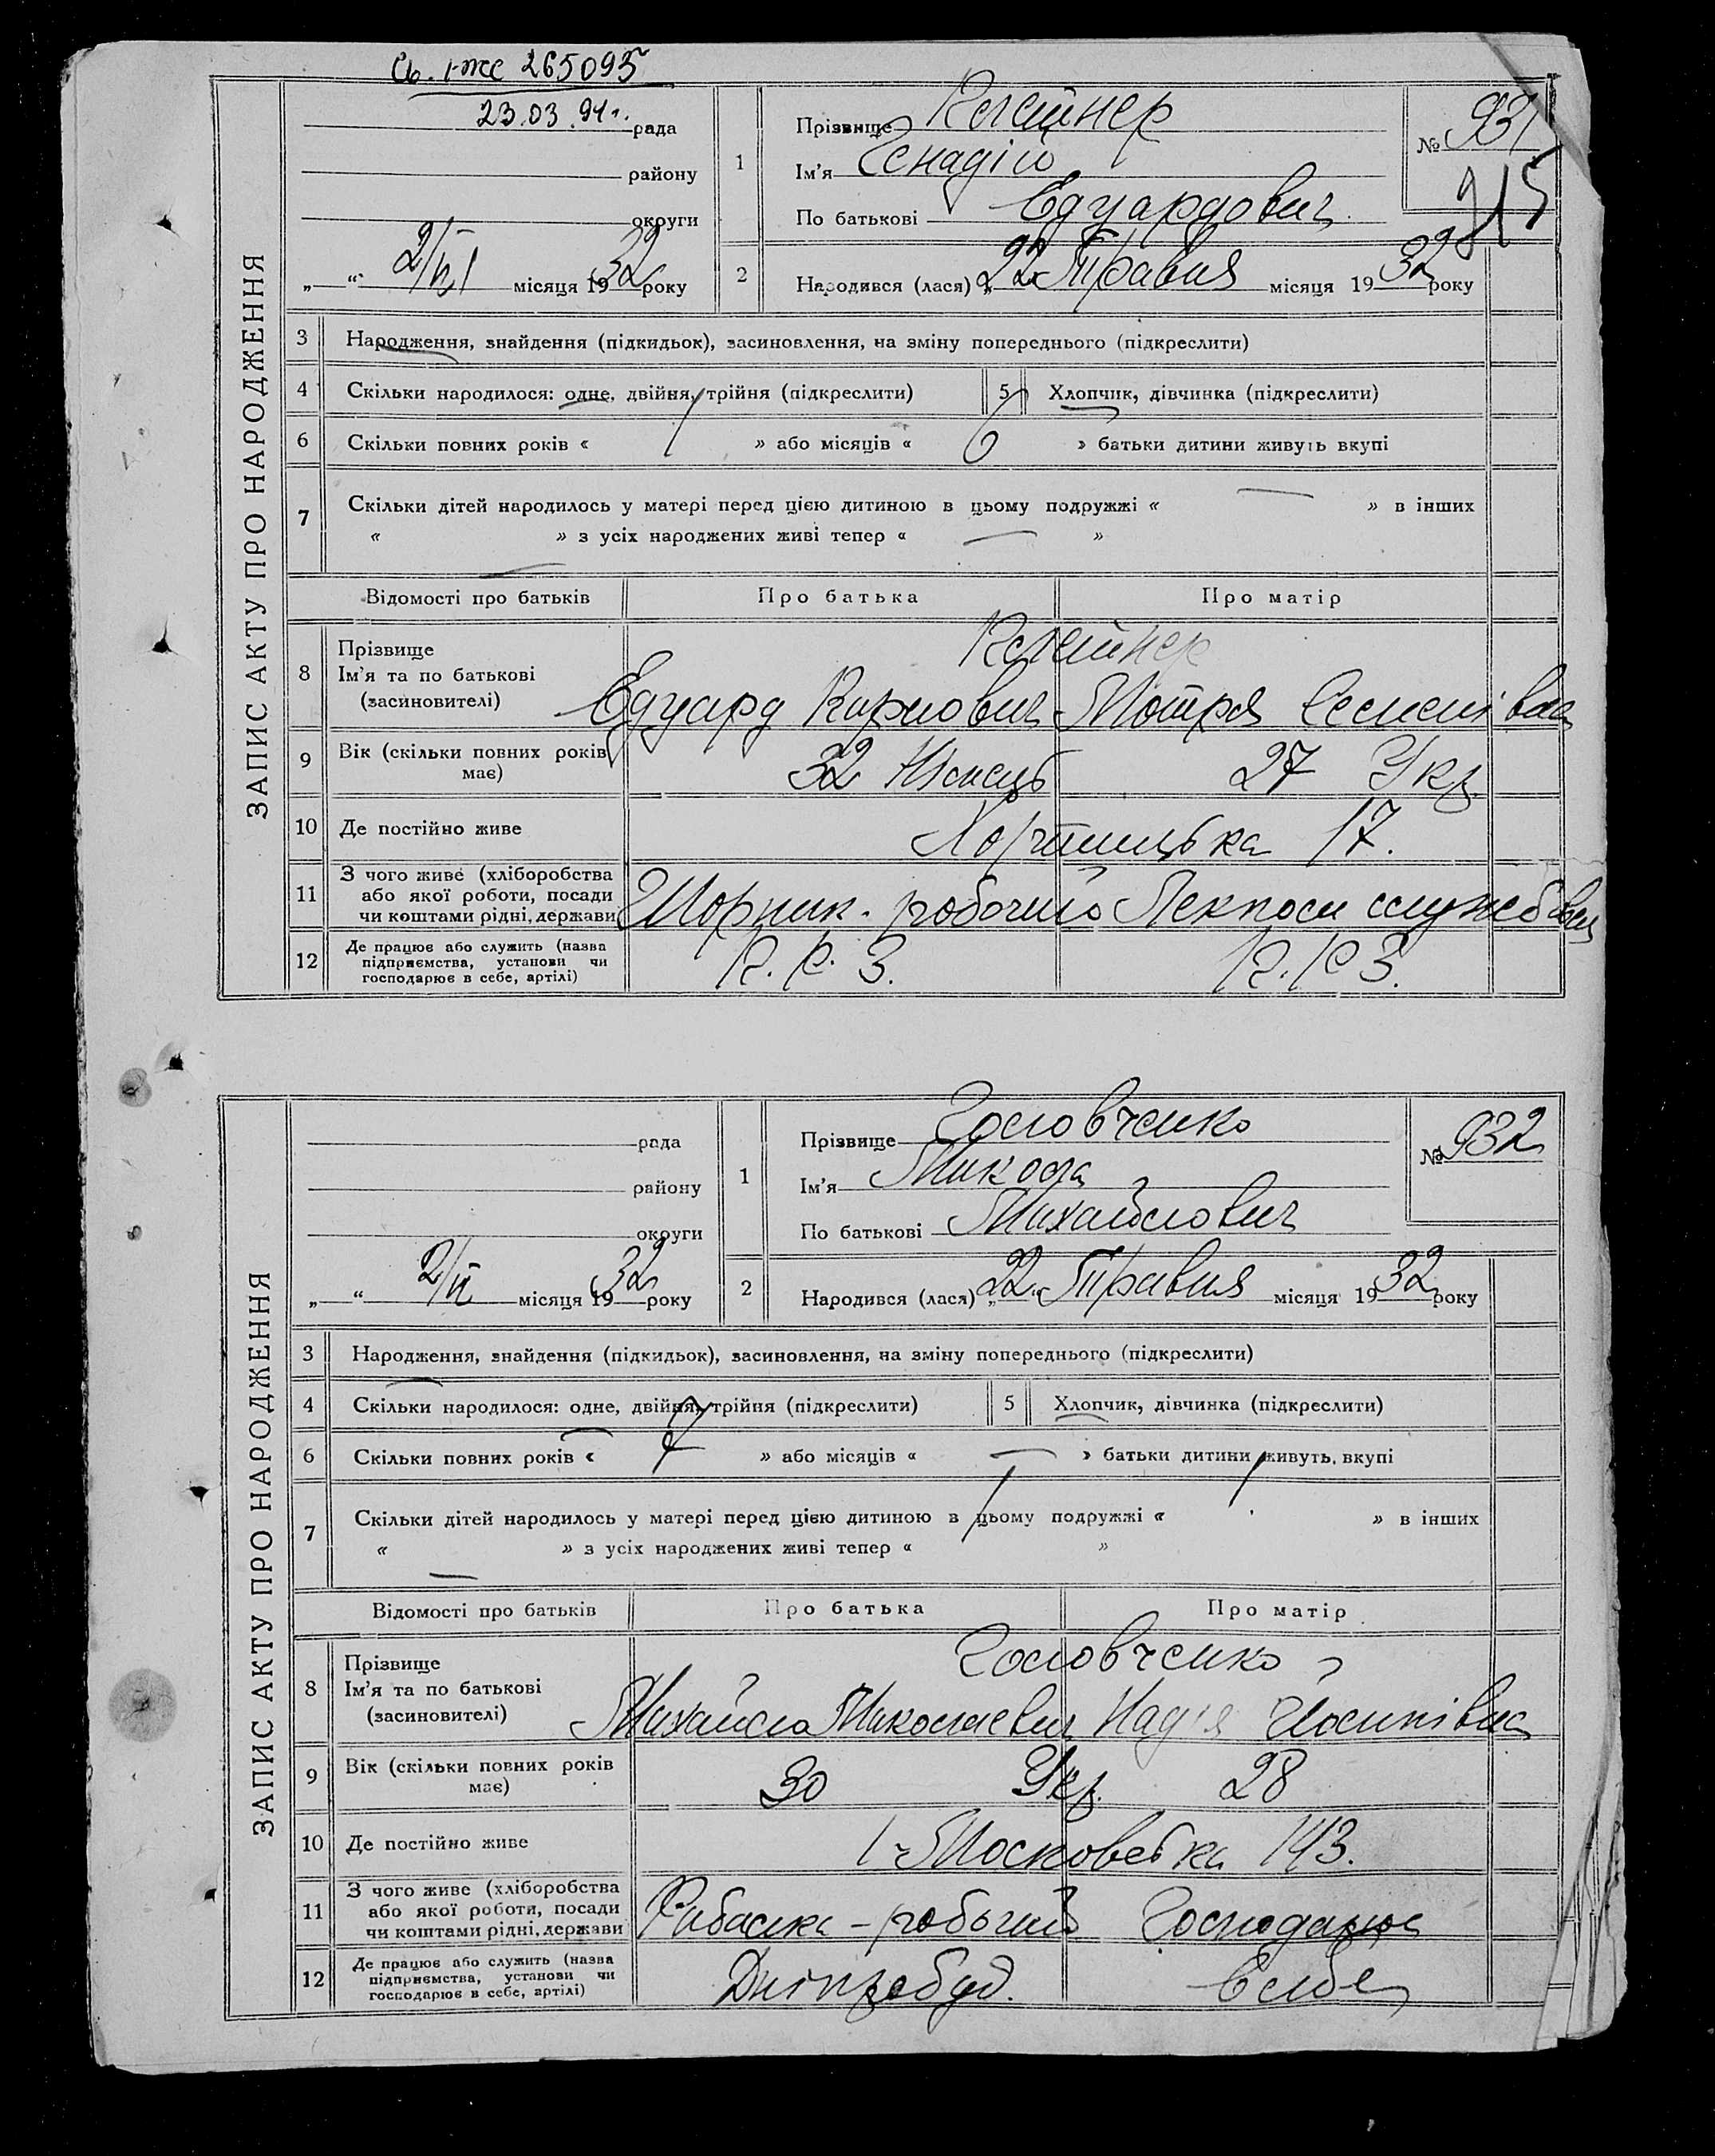 Св. I-ЖС 265095
23.03.94 г.
ЗАПИС АКТУ ПРО НАРОДЖЕННЯ
рада
району
округи
„ “ 2/VI місяця 1932 року
1
Прізвище Клейнер
Ім'я Генадій
По батькові Едуардович
№ 931
2
Народився (лася) „22“ Травня місяця 1932 року
3 Народження, знайдення (підкидьок), засиновлення, на зміну попереднього (підкреслити)
4 Скільки народилося: одне, двійня, трійня (підкреслити) 5 Хлопчик, дівчинка (підкреслити)
6 Скільки повних років « » або місяців « » батьки дитини живуть вкупі
7 Скільки дітей народилось у матері перед цією дитиною в цьому подружжі « — » в інших
« » з усіх народжених живі тепер « — »
Відомості про батьків Про батька Про матір
8 Прізвище
Ім'я та по батькові
(засиновителі)
Клейнер
Едуард Карлович Мотря Семенівна
9 Вік (скільки повних років має) 32 Німець 27 Укр.
10 Де постійно живе Хортицька 17.
11 З чого живе (хліборобства
або якої роботи, посади
чи коштами рідні, держави
Шорник - робочий службов
12 Де працює або служить (назва
підприємства, установи чи
господарює в себе, артілі)
К. Р. З. К. Р. З.
ЗАПИС АКТУ ПРО НАРОДЖЕННЯ
рада
району
округи
„ “ 2/VI місяця 1932 року
1
Прізвище Головченко
Ім'я Микола
По батькові Михайлович
№ 932
2
Народився (лася) „22“ Травня місяця 1932 року
3 Народження, знайдення (підкидьок), засиновлення, на зміну попереднього (підкреслити)
4 Скільки народилося: одне, двійня, трійня (підкреслити) 5 Хлопчик, дівчинка (підкреслити)
6 Скільки повних років « » або місяців « — » батьки дитини живуть вкупі
7 Скільки дітей народилось у матері перед цією дитиною в цьому подружжі « » в інших
« — » з усіх народжених живі тепер « »
Відомості про батьків Про батька Про матір
8 Прізвище
Ім'я та по батькові
(засиновителі)
Головченко
Михайло Миколаєвич Надія Йосипівна
9 Вік (скільки повних років має) 30 Укр. 28
10 Де постійно живе 1-Московська 143.
11 З чого живе (хліборобства
або якої роботи, посади
чи коштами рідні, держави
Рибалка - робочий Господарює
12 Де працює або служить (назва
підприємства, установи чи
господарює в себе, артілі)
Дніпробуд. в себе